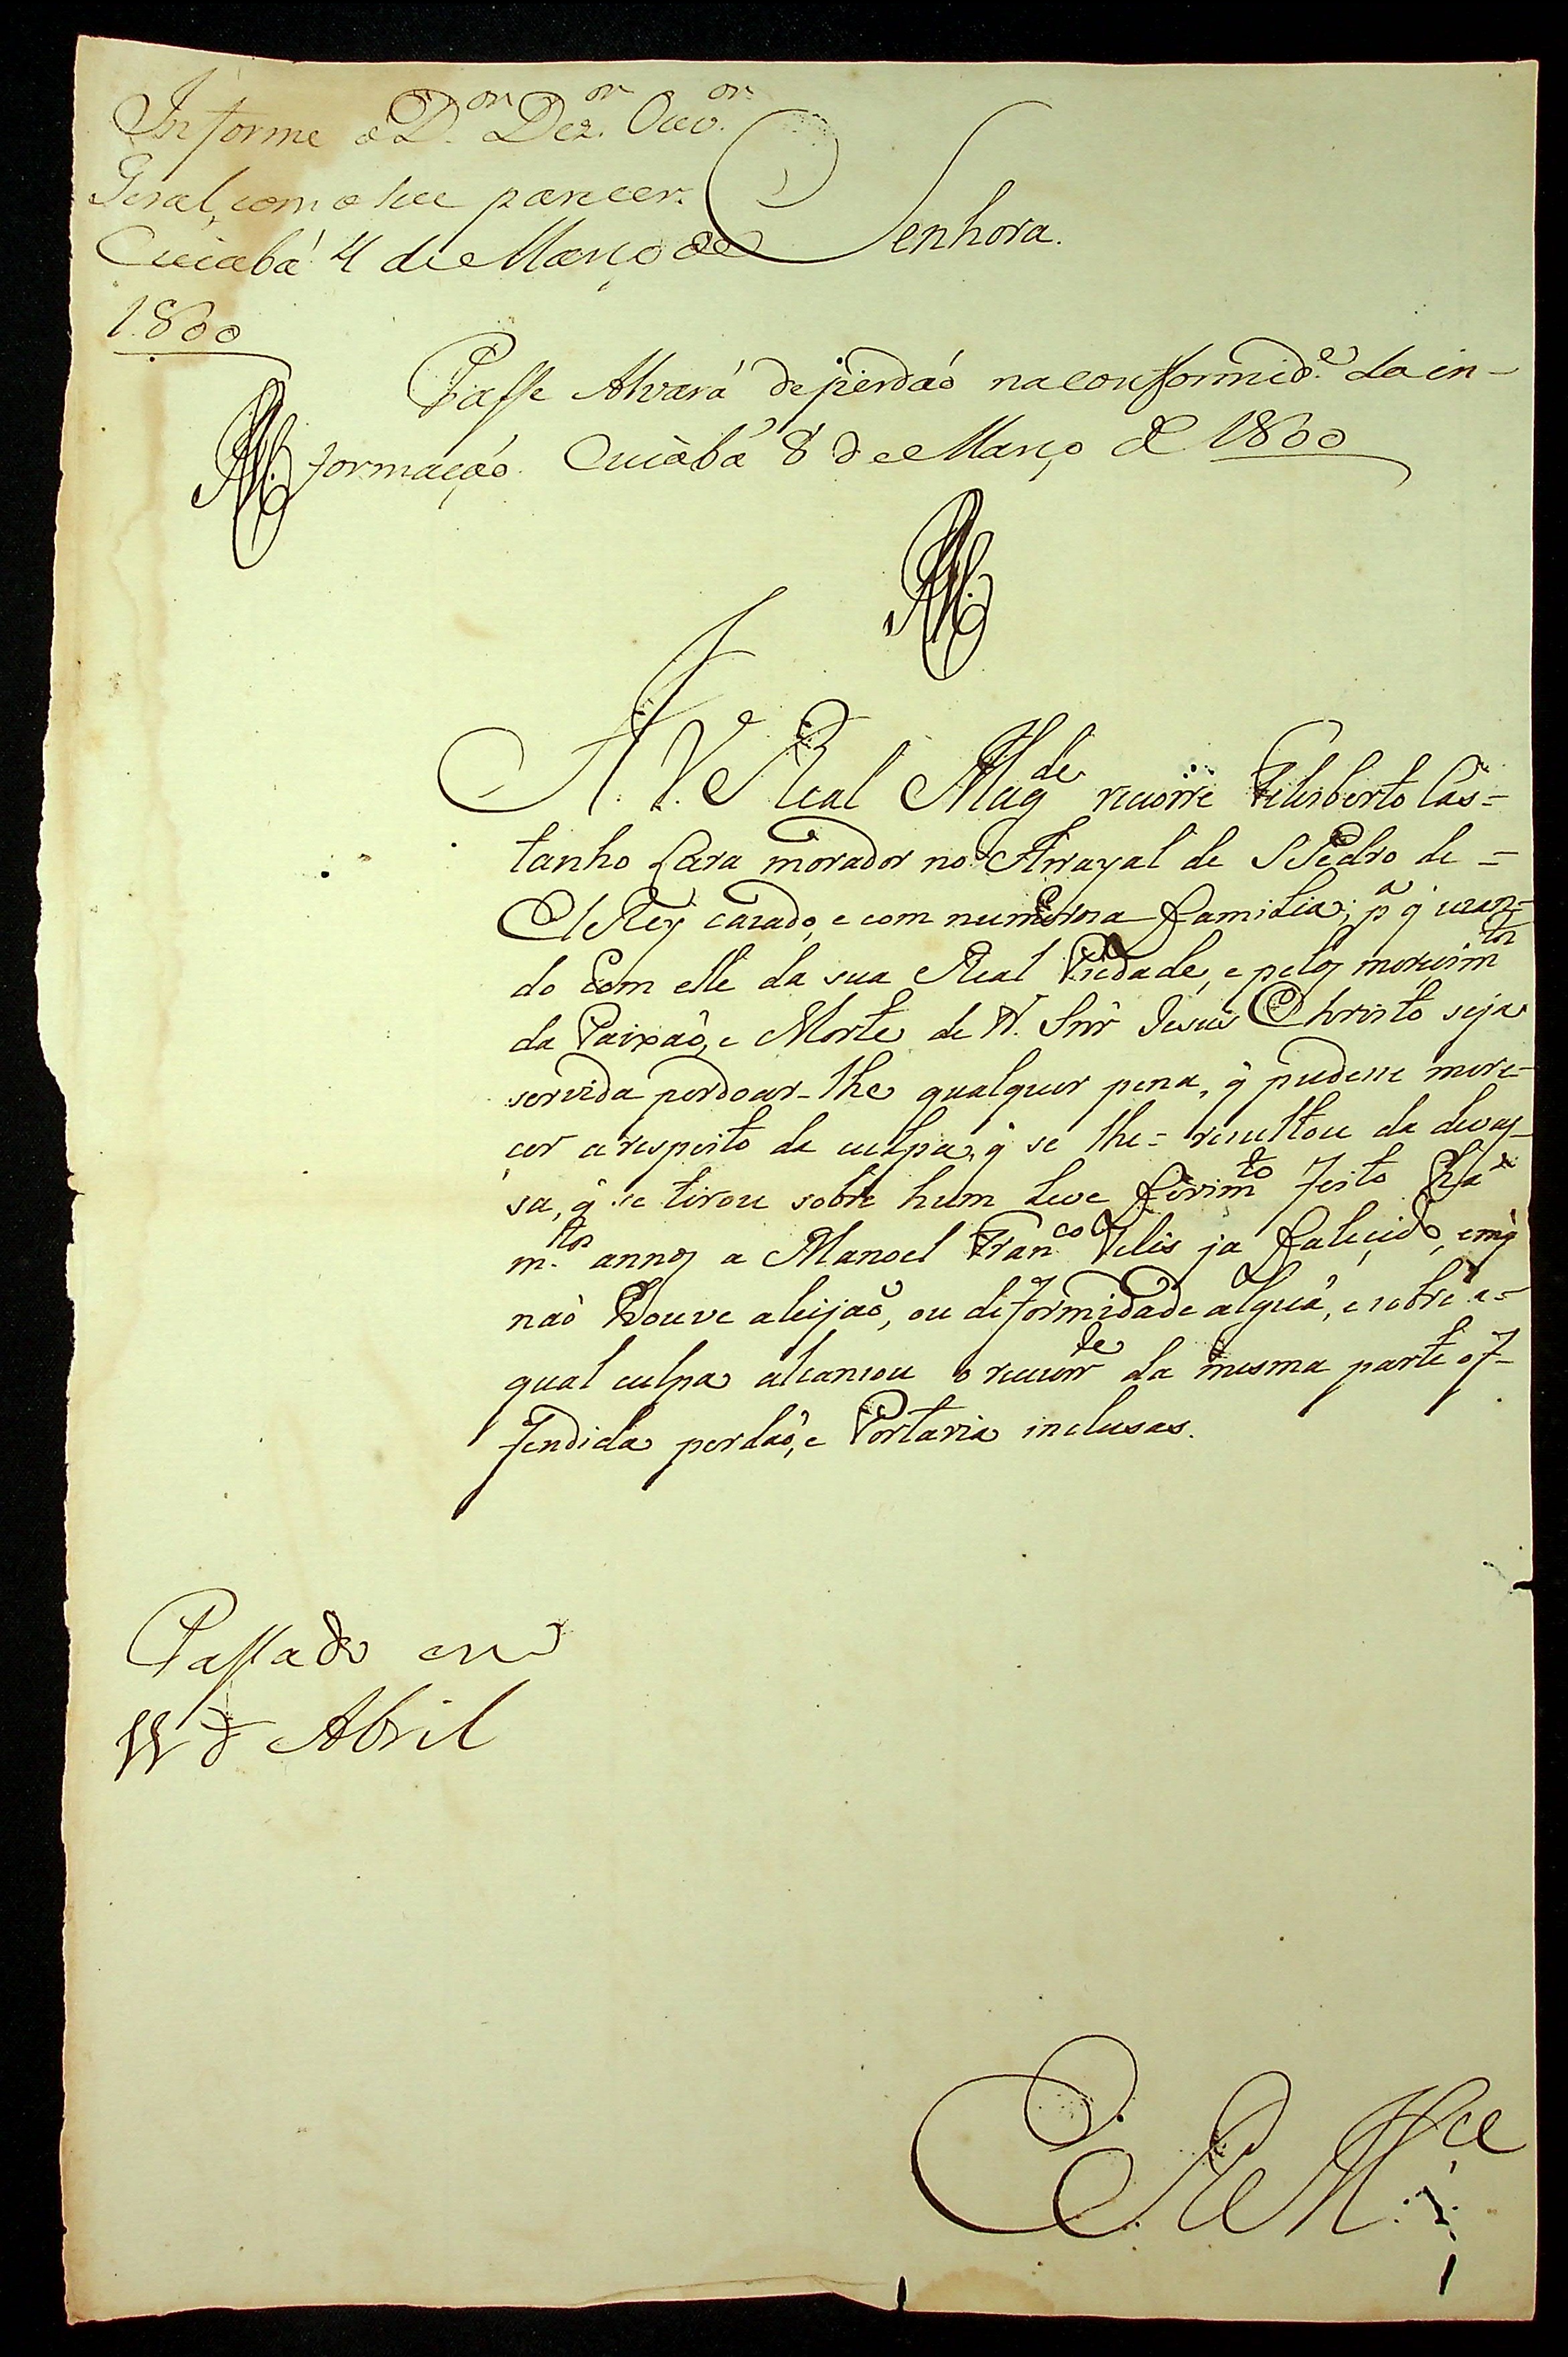 Informe o D.or Dez.or Ouv.or
Geral, com o seu parecer.
Cuiabá 4 de Março de
1800
Senhora.
Passe Alvará de perdaõ na conformid.e da in-
formaçaõ. Cuiabá 8 de Março de 1800
A. V. Real Mag.de recorre Feliberto Cas=
tanho Lara morador no Arrayal de S Pedro de =
El Rey cazado, e com numeroza familia; p.a q̃ uzan=
do com elle da sua Real Piedade, e pelos merecim.tos
da Paixaõ, e Morte de N. Snr̃ Jesus Christo seja
servida perdoar-lhe qualquer pena, q̃ pudesse mere-
cer a respeito da culpa, q̃ se lhe= resultou da devas-
sa, q̃ se tirou sobre hum leve ferim.to feito há
m.tos annos a Manoel Fran.co Velis ja falecido, emq̃
naõ houve aleijaõ, ou deformidade algũa, e sobre a=
qual culpa alcansou o recorr.te da mesma parte of-
fendida perdaõ, e Portaria inclusas.
Passado em
11 de Abril
E. R. M.ce